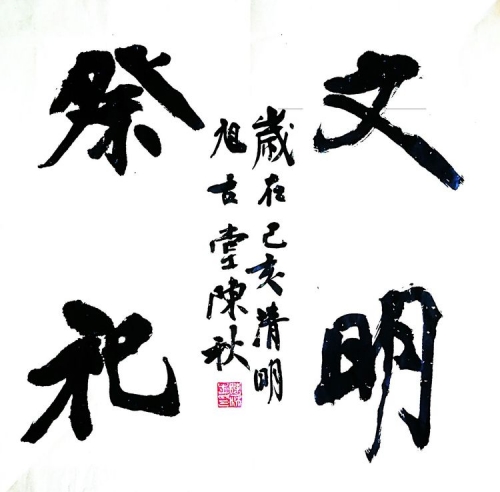 文明
祭祀
歲在己亥清明
旭古堂陳秋